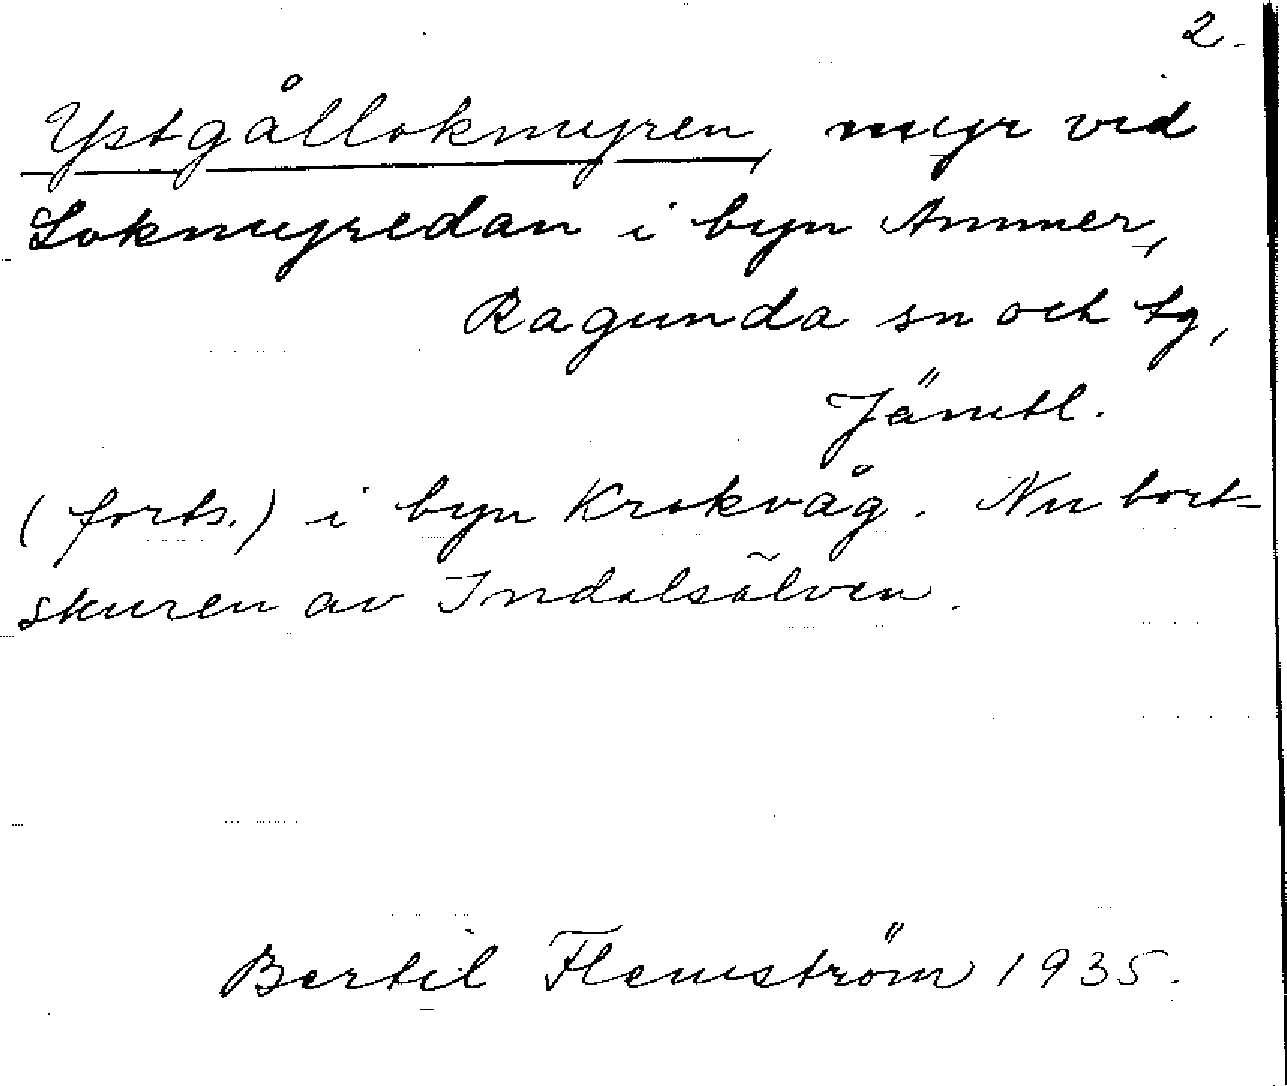 2.
Ystgållokmyren, myr vid
Lokmyredan i byn Ammer,
Ragunda sn och tg,
Jämtl.
(forts.) i byn Krokvåg. Nu bort-
skuren av Indalsälven.
Bertil Flemström 1935.